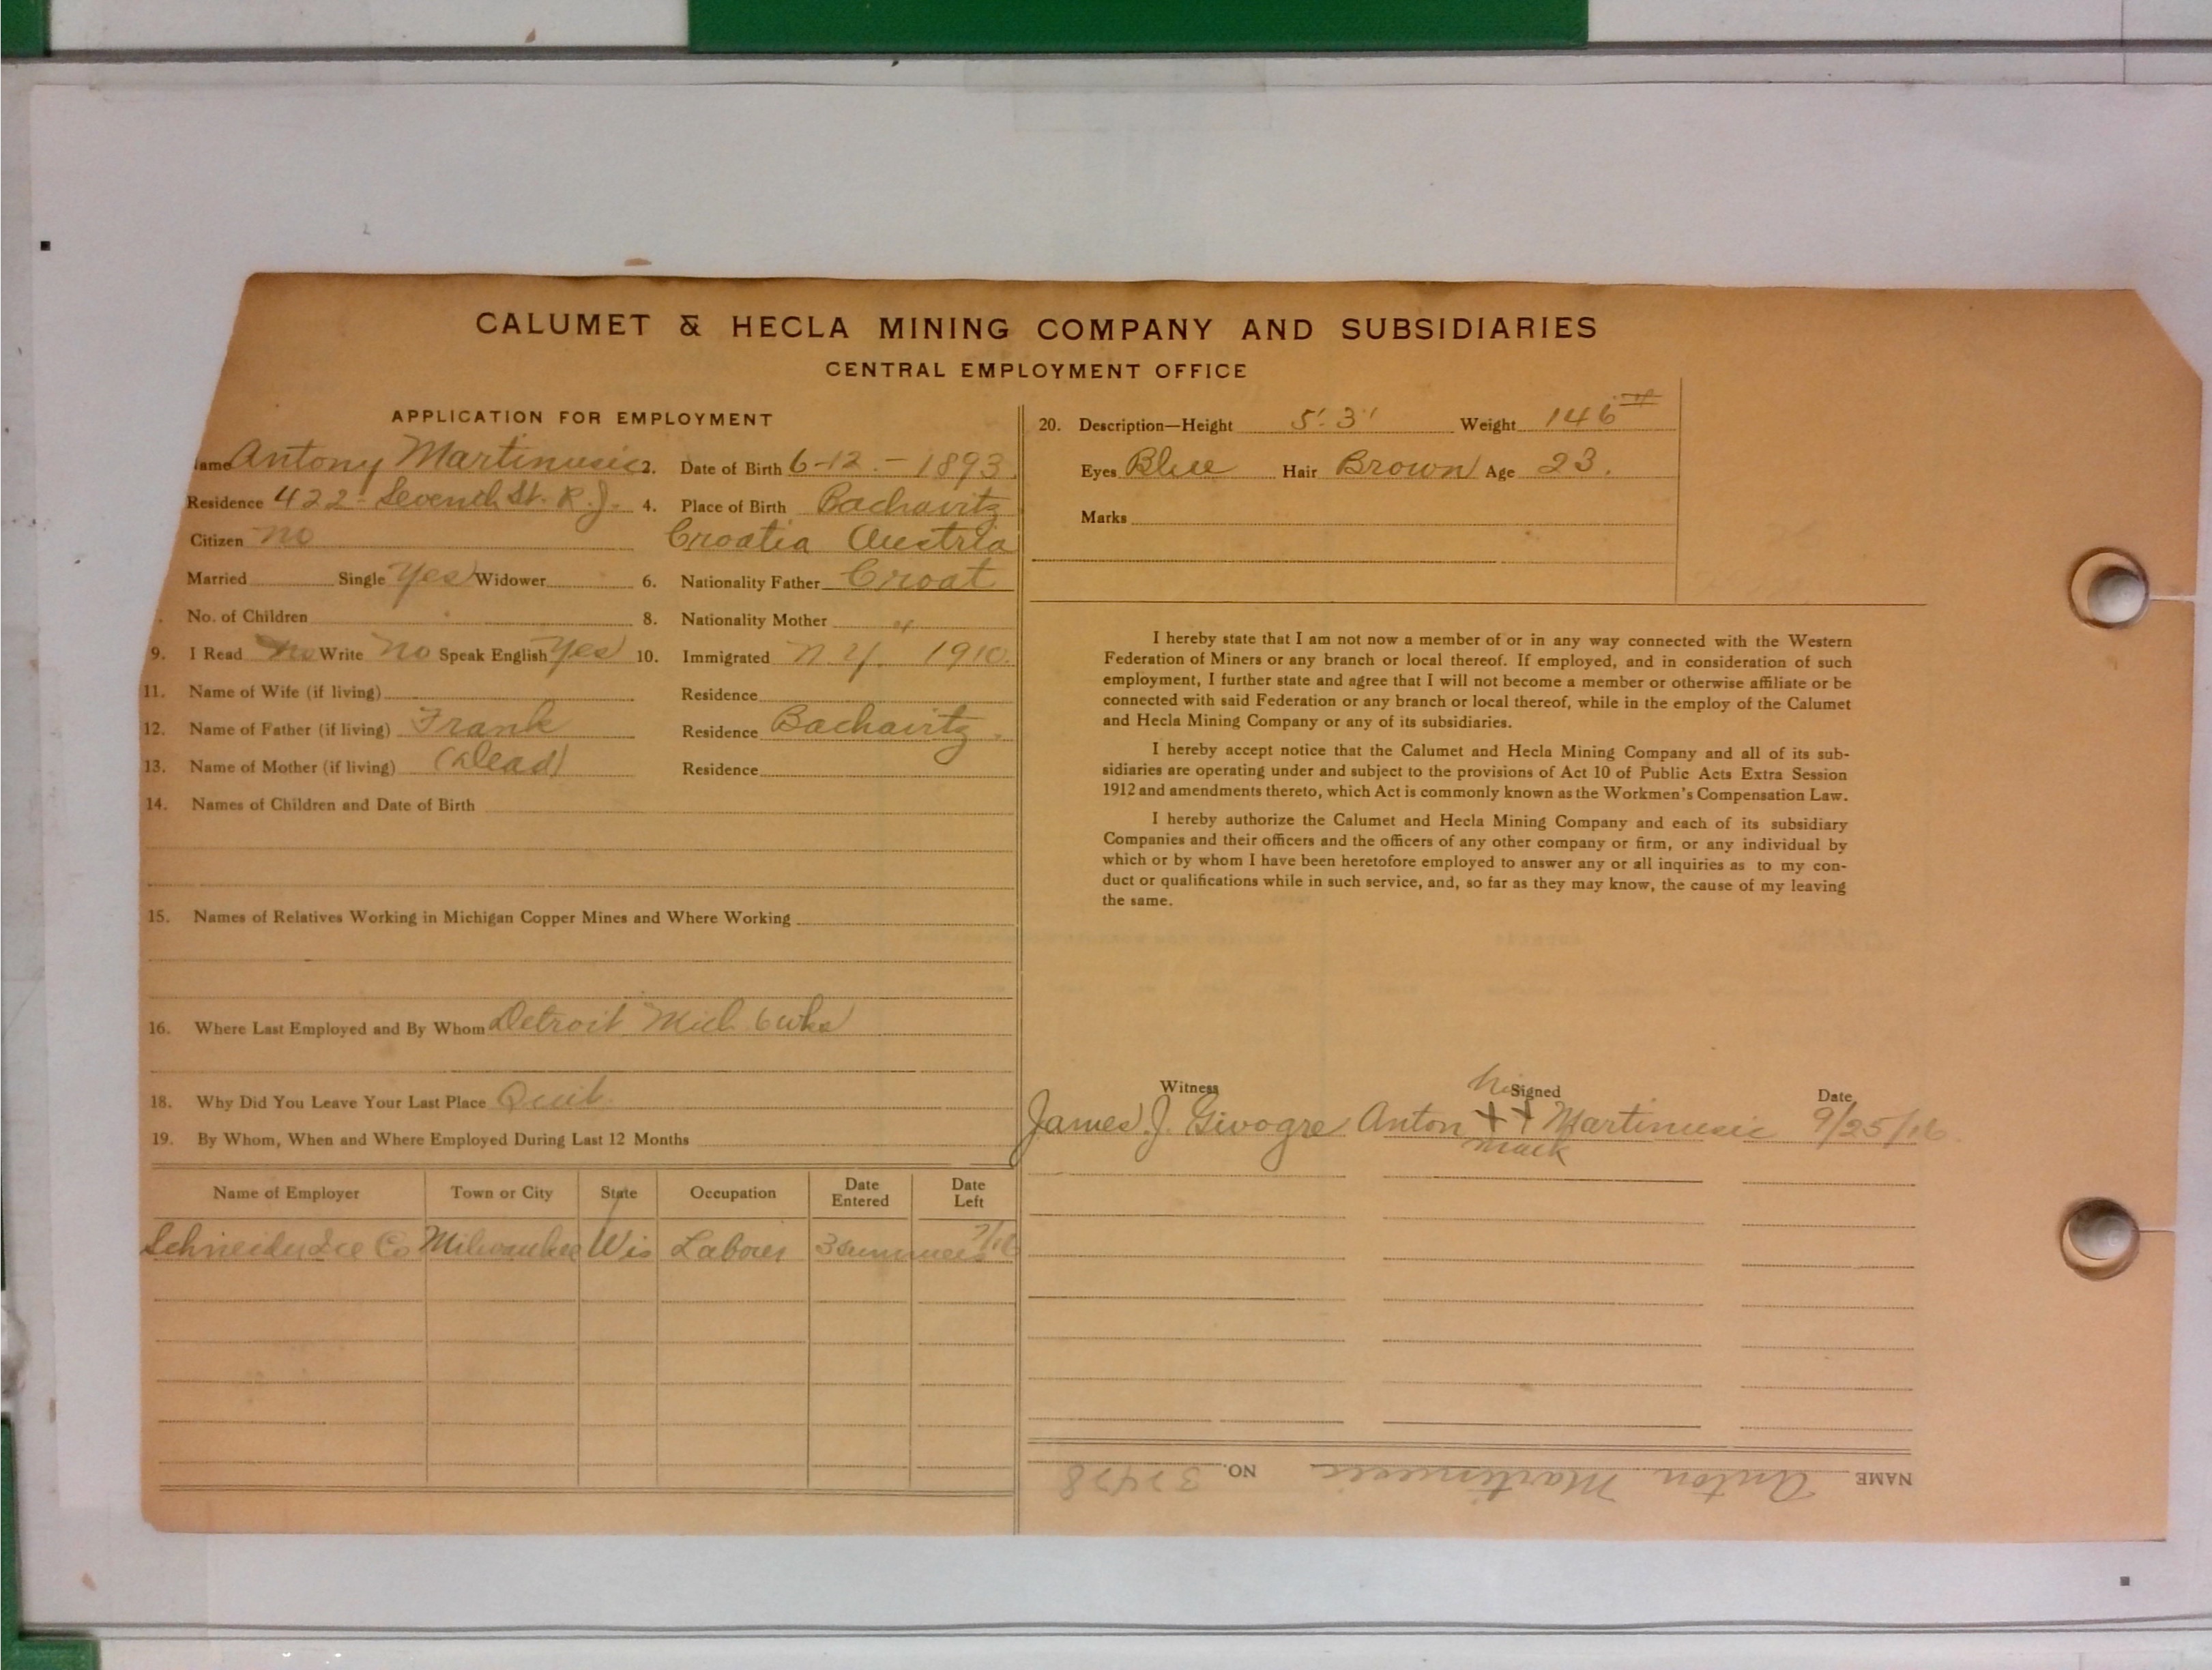 CALUMET & HECLA MINING COMPANY AND SUBSIDIARIES
CENTRAL EMPLOYMENT OFFICE
APPLICATION FOR EMPLOYMENT
ame Antony Martinusic 2. Date of Birth 6-12-1893
Residence 422- Seventh St. R.J. 4. Place of Birth Bachavitz
Citizen no Croatia Austria
Married Single Yes Widower 6. Nationality Father Croat
No. of Children 8. Nationality Mother "
9. I Read No Write No Speak English Yes 10. Immigrated N.Y. 1910.
11. Name of Wife (if living) Residence
12. Name of Father (if living) Frank Residence Bachavitz.
13. Name of Mother (if living) (Dead) Residence
14. Names of Children and Date of Birth
15. Names of Relatives Working in Michigan Copper Mines and Where Working
16. Where Last Employed and By Whom Detroit Mich 6 wks
18. Why Did You Leave Your Last Place Quit
19. By Whom, When and Where Employed During Last 12 Months
Name of Employer Town or City State Occupation Date Entered Date Left
Schneider Ice Co Milwaukee Wis Laborer 3 summers 7/16
20. Description—Height 5' 3" Weight 146
Eyes Blue Hair Brown Age 23.
Marks
I hereby state that I am not now a member of or in any way connected with the Western
Federation of Miners or any branch or local thereof. If employed, and in consideration of such
employment, I further state and agree that I will not become a member or otherwise affiliate or be
connected with said Federation or any branch or local thereof, while in the employ of the Calumet
and Hecla Mining Company or any of its subsidiaries.
I hereby accept notice that the Calumet and Hecla Mining Company and all of its sub-
sidiaries are operating under and subject to the provisions of Act 10 of Public Acts Extra Session
1912 and amendments thereto, which Act is commonly known as the Workmen's Compensation Law.
I hereby authorize the Calumet and Hecla Mining Company and each of its subsidiary
Companies and their officers and the officers of any other company or firm, or any individual by
which or by whom I have been heretofore employed to answer any or all inquiries as to my con-
duct or qualifications while in such service, and, so far as they may know, the cause of my leaving
the same.
Witness his Signed Date
James J. Givogre Anton + + Martinusic 9/25/16
mark
NAME Anton Martinusic NO.